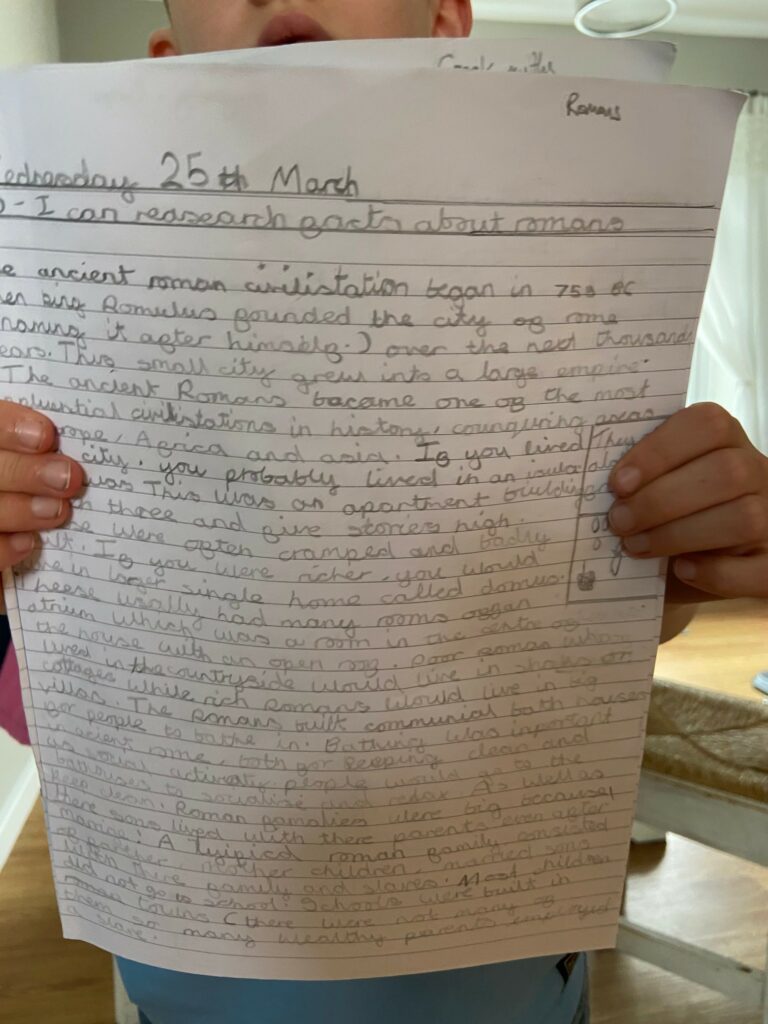 Romans
ednesday 25th March
- I can reasearch facts about romans
e ancient roman civilistation began in 753 BC
en king Romulus founded the city of rome
naming it after himself.) over the next thousand
ears. This small city grew into a large empire.
The ancient Romans became one of the most
nfluential civilistations in history, counquring areas
rope, Africa and asia. If you lived They
city, you probably lived in an insula
was This was an apartment building
three and five stories high.
se were often cramped and badly
ilt. If you were richer, you would
live in larger single home called domus.
heese usally had many rooms
atrium which was a room in the centre of
the house with an open roof. Poor roman whom
lived in the countryside would live in shacks or
cottages while rich Romans would live in big
villas. The Romans built communial bath houses
for people to bathe in. Bathing was important
in acient rome, both for keeping clean and
as social activaty. people would go to the
bathouses to socialise and relax As well as
keep clean. Roman famalies were big because
there sons lived with there parents even after
marrige. A tyipical roman family consisted
of father, mother children, married sons
with there family and slaves. Most children
did not go to school. Schools were built in
roman towns (there were not many of
them so many wealthy parents employed
a slave.